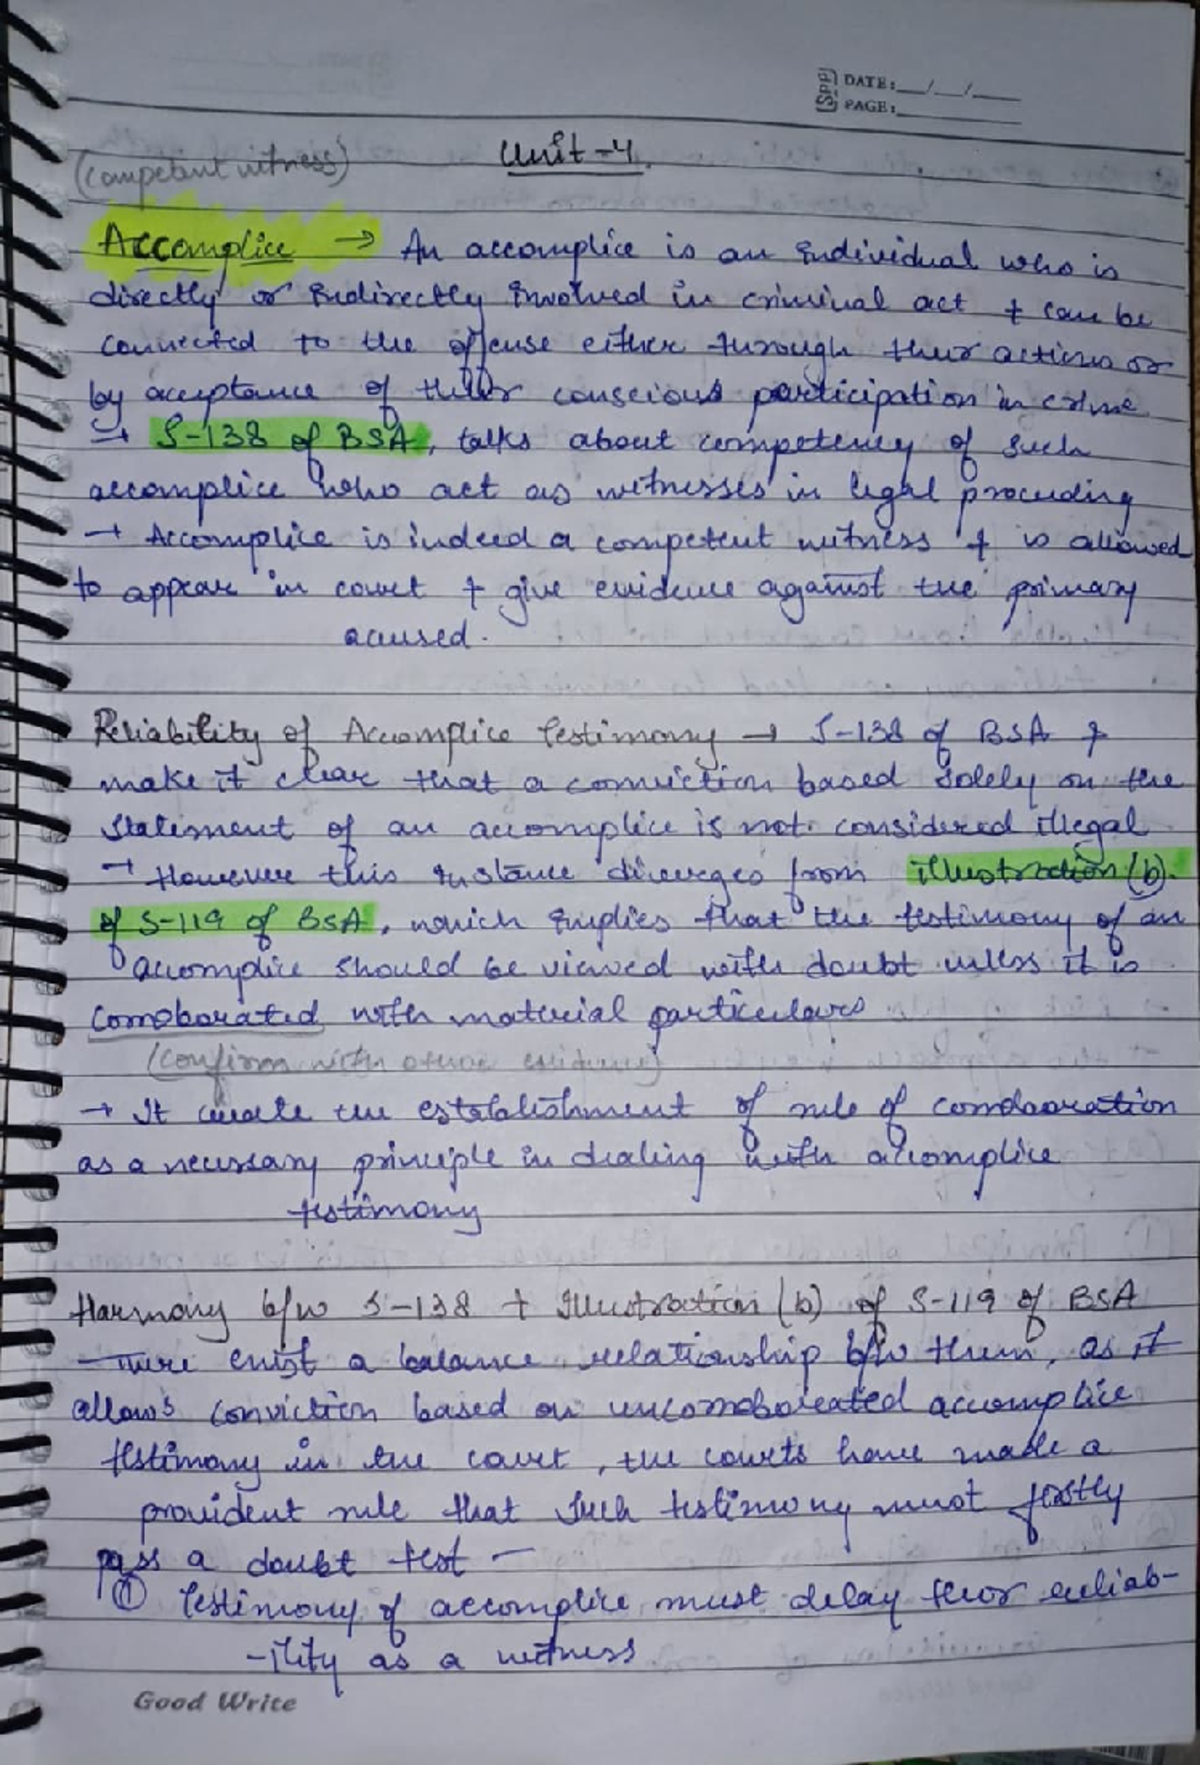 DATE: __/__/__
PAGE:
Unit-4
(competent witness)
Accomplice → An accomplice is an individual who is
directly or indirectly involved in criminal act + can be
connected to the offense either through their actions or
by acceptance of their conscious participation in crime
→ S-138 of BSA, talks about competency of such
accomplice who act as witnesses in legal proceeding
→ Accomplice is indeed a competent witness + is allowed
to appear in court + give evidence against the primary
accused.
Reliability of Accomplice Testimony → S-138 of BSA
make it clear that a conviction based solely on the
statement of an accomplice is not considered illegal
→ However this instance diverges from illustration (b)
of S-119 of BSA, which implies that the testimony of an
accomplice should be viewed with doubt unless it is
corroborated with material particulars
(confirm with other evidence)
→ It create the establishment of rule of corroboration
as a necessary principle in dealing with accomplice
testimony
Harmony b/w S-138 + Illustration (b) of S-119 of BSA
There exist a balance relationship b/w them, as it
allows conviction based on uncorroborated accomplice
testimony in the court, the courts have made a
provident rule that such testimony must firstly
pass a doubt test —
① Testimony of accomplice must delay their reliab-
-ility as a witness
Good Write